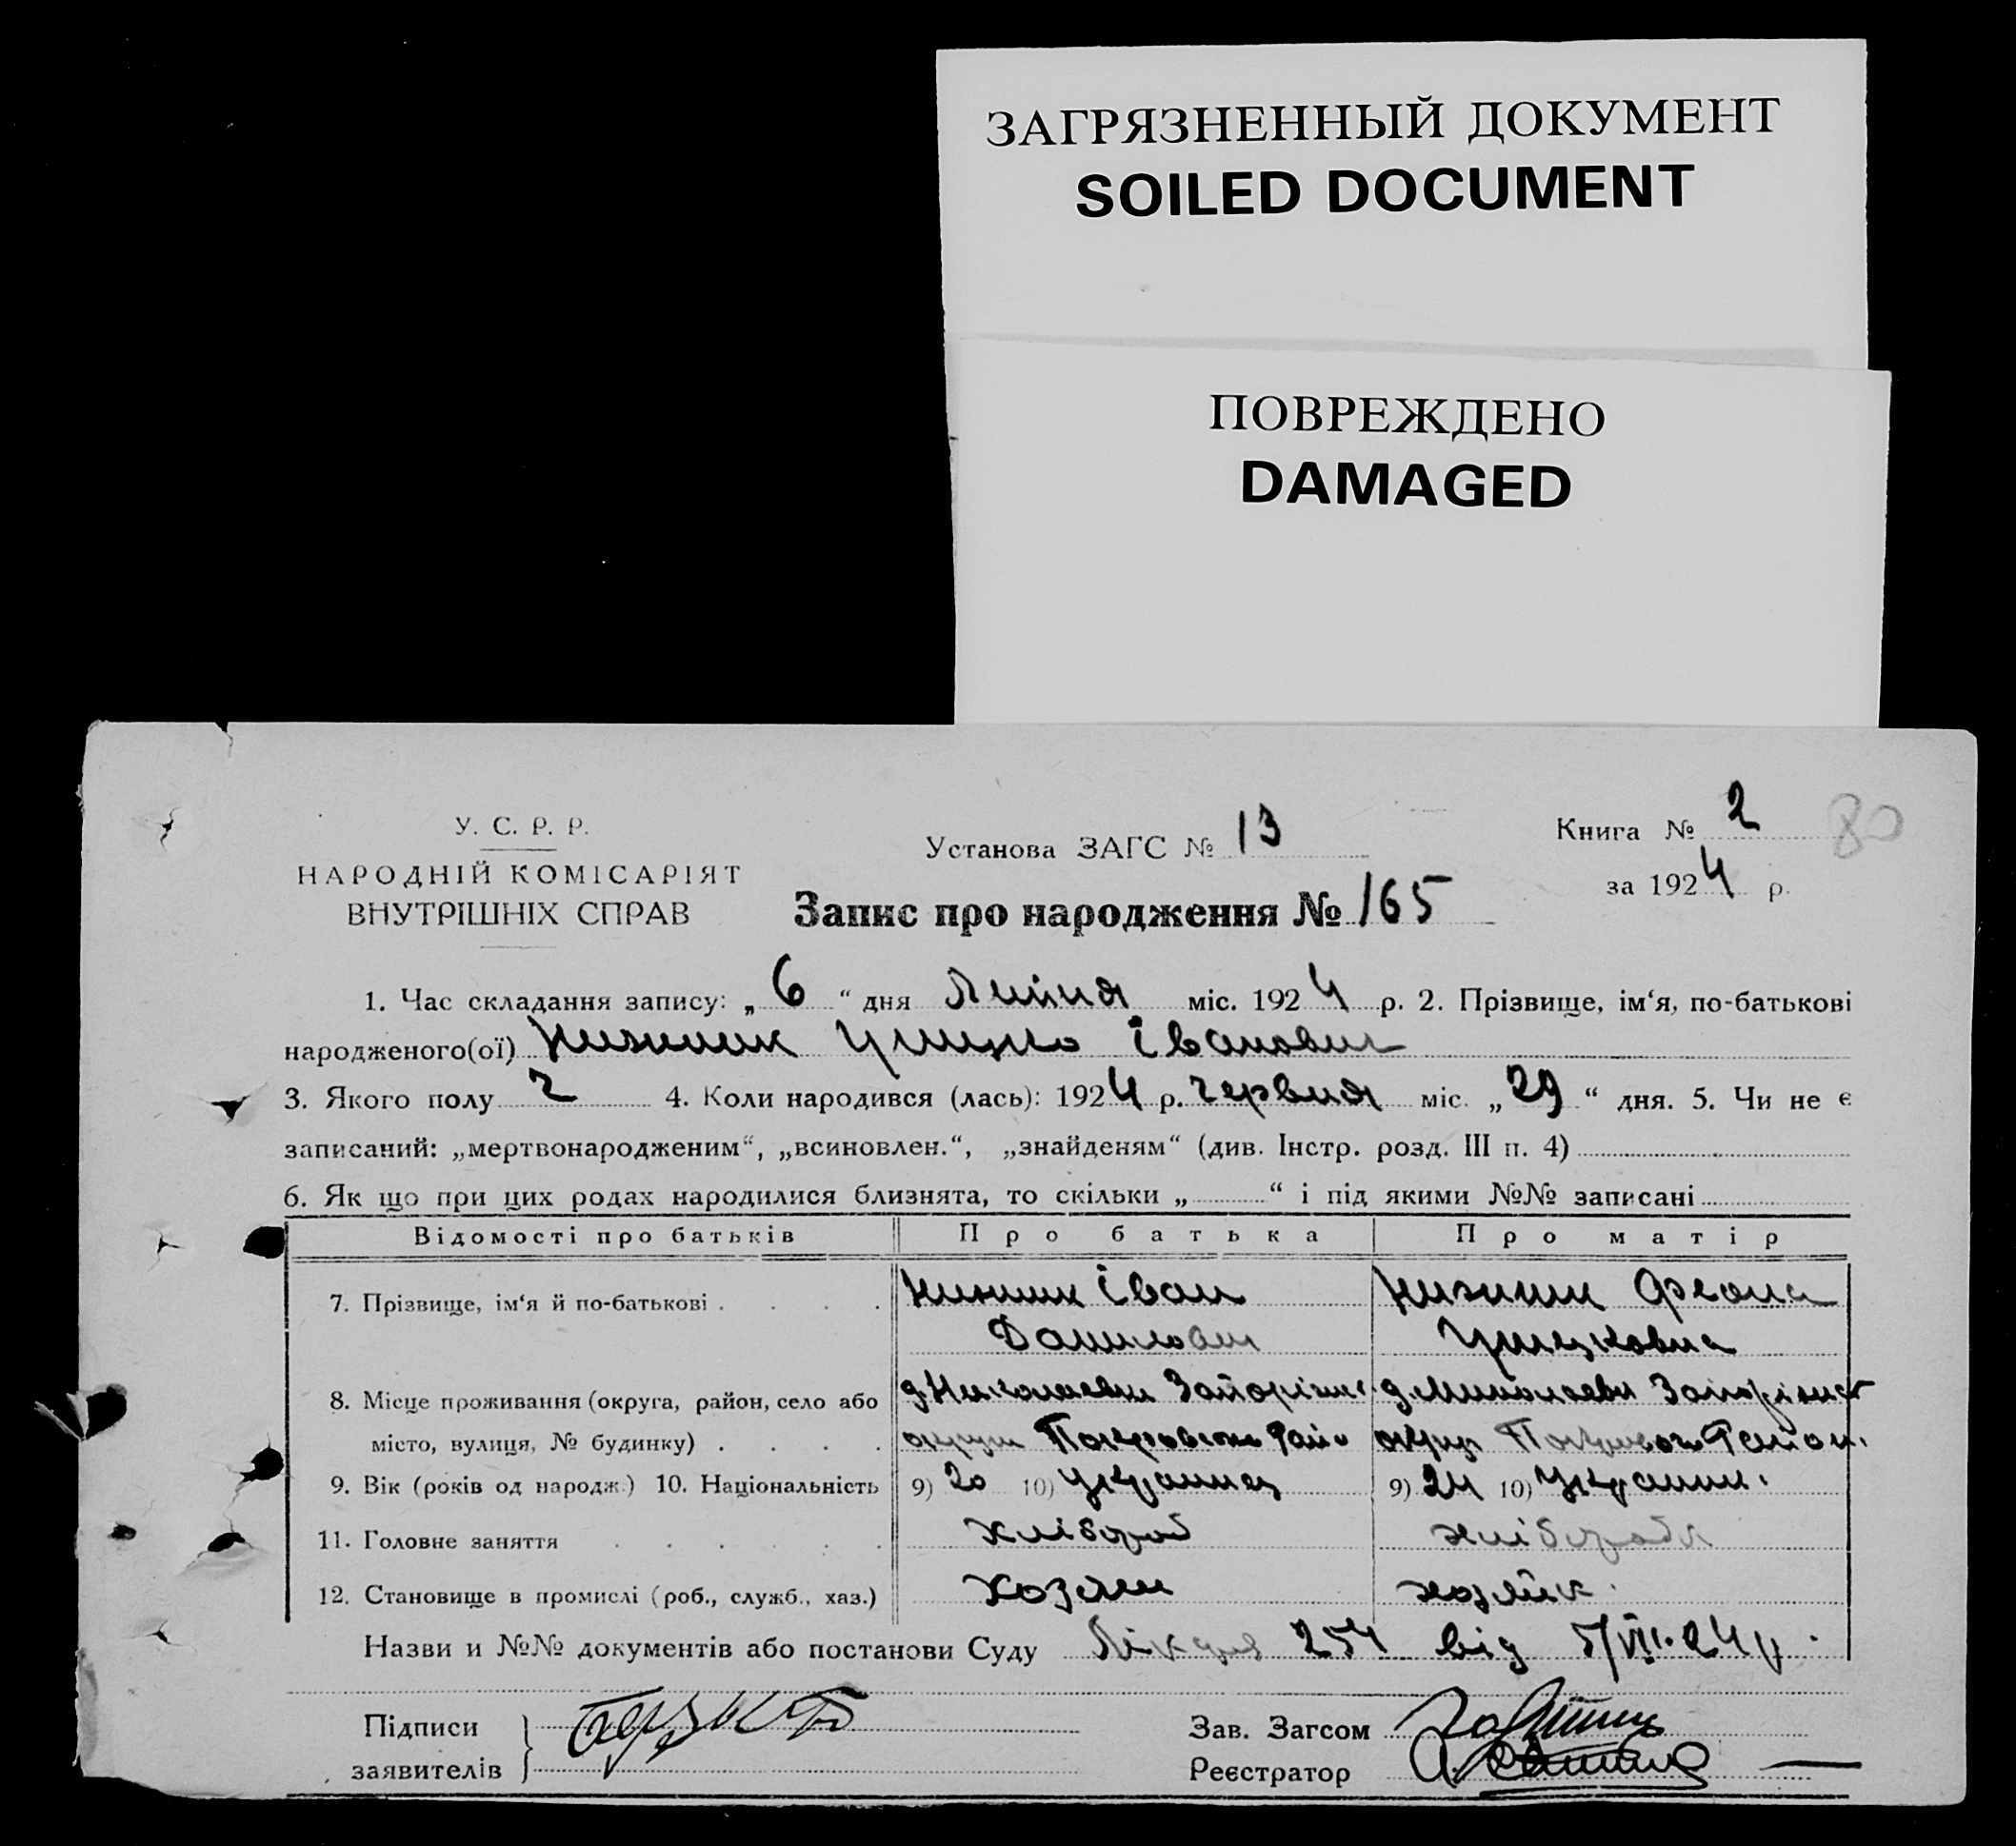 ЗАГРЯЗНЕННЫЙ ДОКУМЕНТ
SOILED DOCUMENT
ПОВРЕЖДЕНО
DAMAGED
У. С. Р. Р.
НАРОДНІЙ КОМІСАРІЯТ
ВНУТРІШНІХ СПРАВ
Установа ЗАГС № 13
Книга № 2
80
за 1924 р.
Запис про народження № 165
1. Час складання запису: „ 6 “ дня Липня міс. 1924 р. 2. Прізвище, ім‘я, по-батькові
народженого(ої) Іванович
3. Якого полу ч 4. Коли народився (лась): 1924 р. червня міс. „ 29 “ дня. 5. Чи не є
записаний: „мертвонародженим“, „всиновлен.“, „знайденям“ (див. Інстр. розд. III п. 4)
6. Як що при цих родах народилися близнята, то скільки „ “ і під якими №№ записані
Відомості про батьків Про батька Про матір
7. Прізвище, ім‘я й по-батькові Іван
Данилович
8. Місце проживання (округа, район, село або
місто, вулиця, № будинку) округи
9. Вік (років од народж.) 10. Національність 9) 20 10) Українец 9) 24 10) Україн.
11. Головне заняття хлібороб хлібороб
12. Становище в промислі (роб., служб., хаз.) хозяин хозяйк.
Назви и №№ документів або постанови Суду 254 від 5/VII-24 р.
Підписи
заявителів
Зав. Загсом
Реєстратор